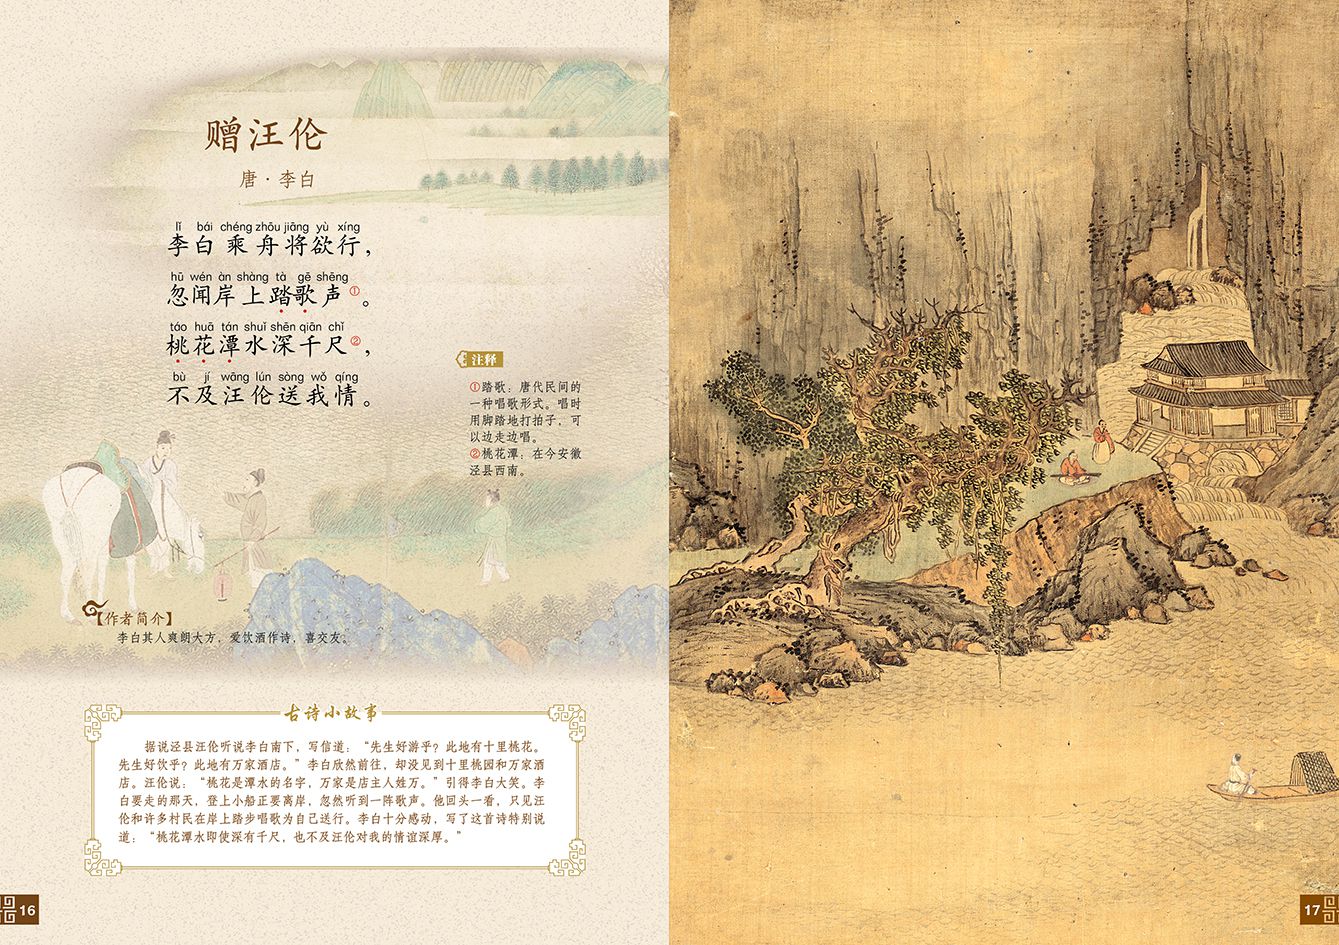 赠汪伦
唐·李白
lǐ bái chéng zhōu jiāng yù xíng
李白乘舟将欲行，
hū wén àn shàng tà gē shēng
忽闻岸上踏歌声①。
táo huā tán shuǐ shēn qiān chǐ
桃花潭水深千尺②，
bù jí wāng lún sòng wǒ qíng
不及汪伦送我情。
注释
①踏歌：唐代民间的
一种唱歌形式。唱时
用脚踏地打拍子，可
以边走边唱。
②桃花潭：在今安徽
泾县西南。
【作者简介】
李白其人爽朗大方，爱饮酒作诗，喜交友。
古诗小故事
据说泾县汪伦听说李白南下，写信道：“先生好游乎？此地有十里桃花。
先生好饮乎？此地有万家酒店。”李白欣然前往，却没见到十里桃园和万家酒
店。汪伦说：“桃花是潭水的名字，万家是店主人姓万。”引得李白大笑。李
白要走的那天，登上小船正要离岸，忽然听到一阵歌声。他回头一看，只见汪
伦和许多村民在岸上踏步唱歌为自己送行。李白十分感动，写了这首诗特别说
道：“桃花潭水即使深有千尺，也不及汪伦对我的情谊深厚。”
16
17